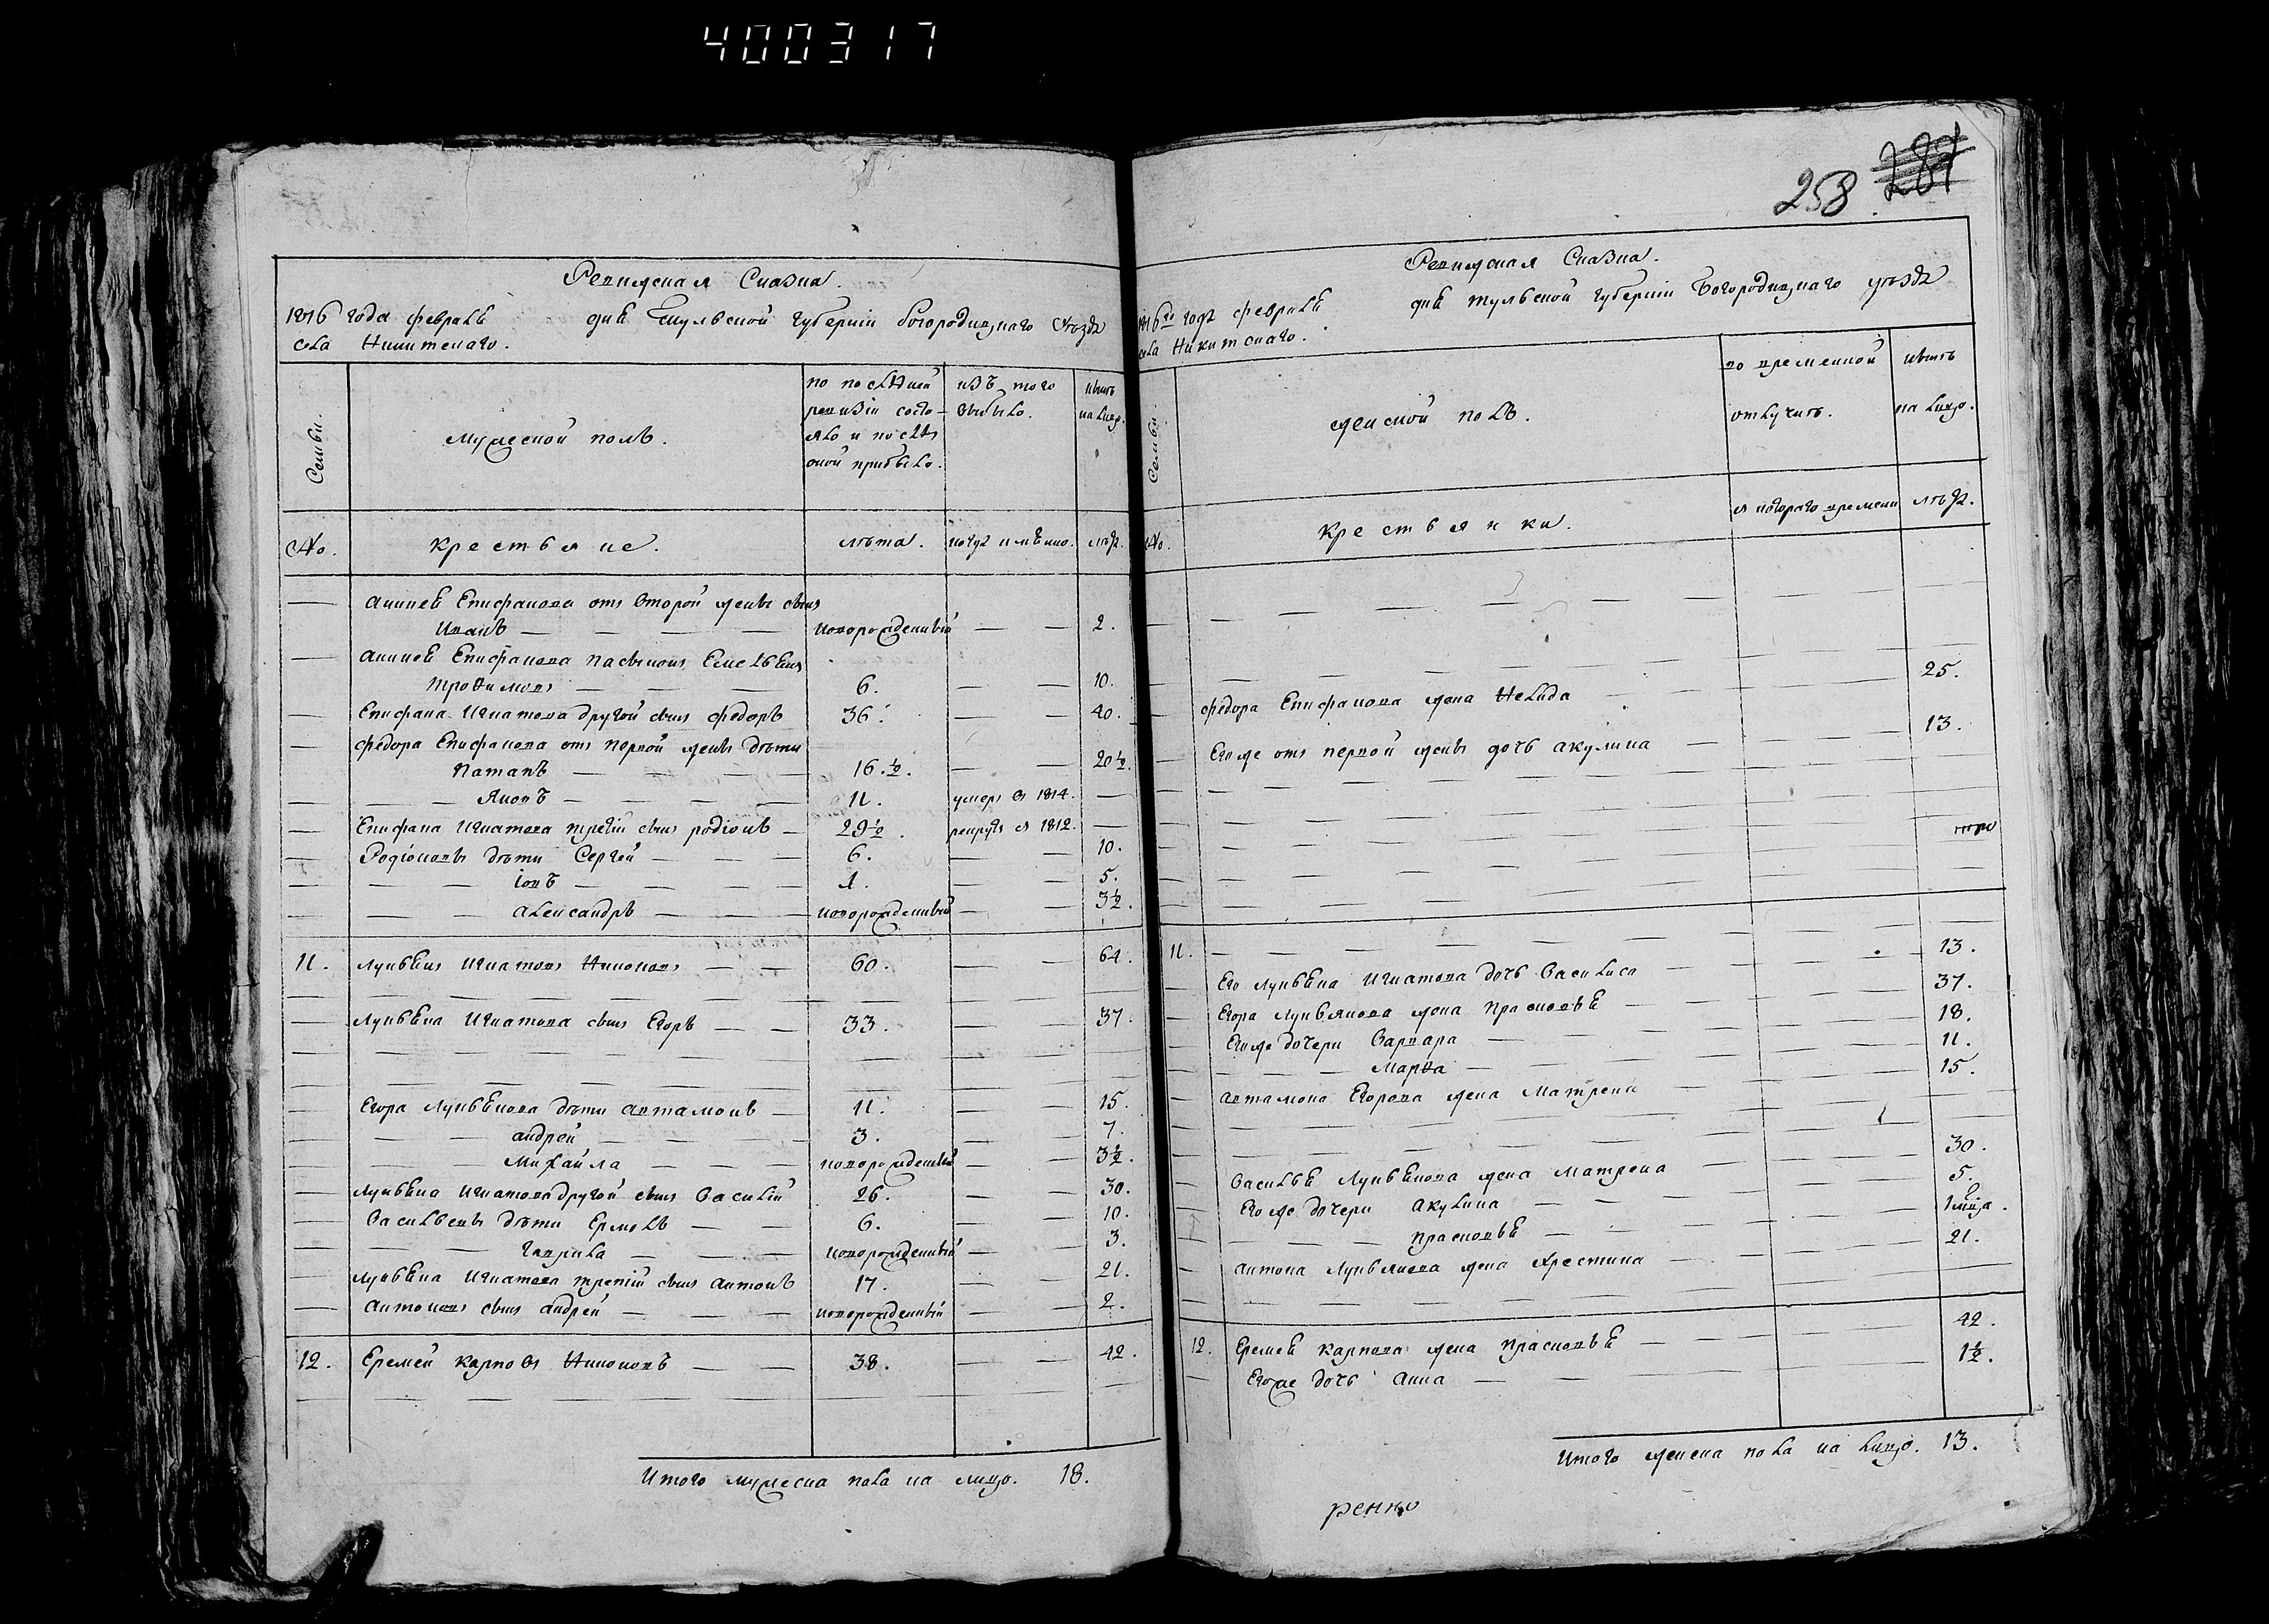 400317
258 287
Ревижская Сказка.
1816 года февраля дня Тульской губернии богородицкаго уезда
села Никитскаго.
Семьи.
мужеской полъ.
по последней
ревизіи состо-
яло и после
оной прибыло.
изъ того
выбыло.
ныне
на лицо.
No.
крестьяне.
лета.
когда имянно.
летъ.
Аникея Епифанова отъ второй жены сынъ
Иванъ — новорожденный — 2.
Аникея Епифанова пасынокъ Емельянъ
трофимовъ — 6. — 10.
Епифана Игнатова другой сынъ федоръ 36. — 40.
федора Епифанова отъ первой жены дети
Патапъ — 16.½. — 20½.
Яковъ — 11. умеръ в 1814. —
Епифана Игнатова третiй сынъ родіонъ — 29½. рекрутъ съ 1812. —
Родіоновы дети Сергей — 6. — 10.
Іовъ — 1. — 5.
александръ — новорожденный — 3½.
11. Лукьянъ Игнатовъ Никоновъ — 60. — 64.
Лукьяна Игнатова сынъ Егоръ — 33. — 37.
Егора Лукьянова дети артамонъ — 11. — 15.
андрей — 3. — 7.
Михайла — новорожденный — 3½.
Лукьяна Игнатова другой сынъ Василій 26. — 30.
Васильевы дети Ермолъ — 6. — 10.
гаврила — новорожденный — 3.
Лукьяна Игнатова третій сынъ антонъ 17. — 21.
антоновъ сынъ андрей — новорожденный — 2.
12. Еремей карповъ Никоновъ — 38. — 42.
Итого мужеска пола на лицо. 18.
Ревижская Сказка.
1816го года февраля дня тульской губерніи Богородицкаго уезда
села Никитскаго.
Семьи.
женской полъ.
во временной
отлучке.
ныне
на лицо.
No.
крестьянки.
съ котораго времени
летъ.
федора Епифанова жена Нелида — 25.
Его же отъ первой жены дочь акулина — 13.
11. —
Его Лукьяна Игнатова дочь Василиса — 13.
Егора Лукьянова жена прасковья — 37.
Его же дочери Варвара — 18.
Марѳа — 11.
артамона Егорова жена Матрена — 15.
Василья Лукьянова жена матрена — 30.
Его же дочери акулина — 5.
прасковья — 1
антона Лукьянова жена Хрестина — 21.
12. Еремея карпова жена прасковья — 42.
Его же дочь анна — 1½.
Итого женска пола на лицо. 13.